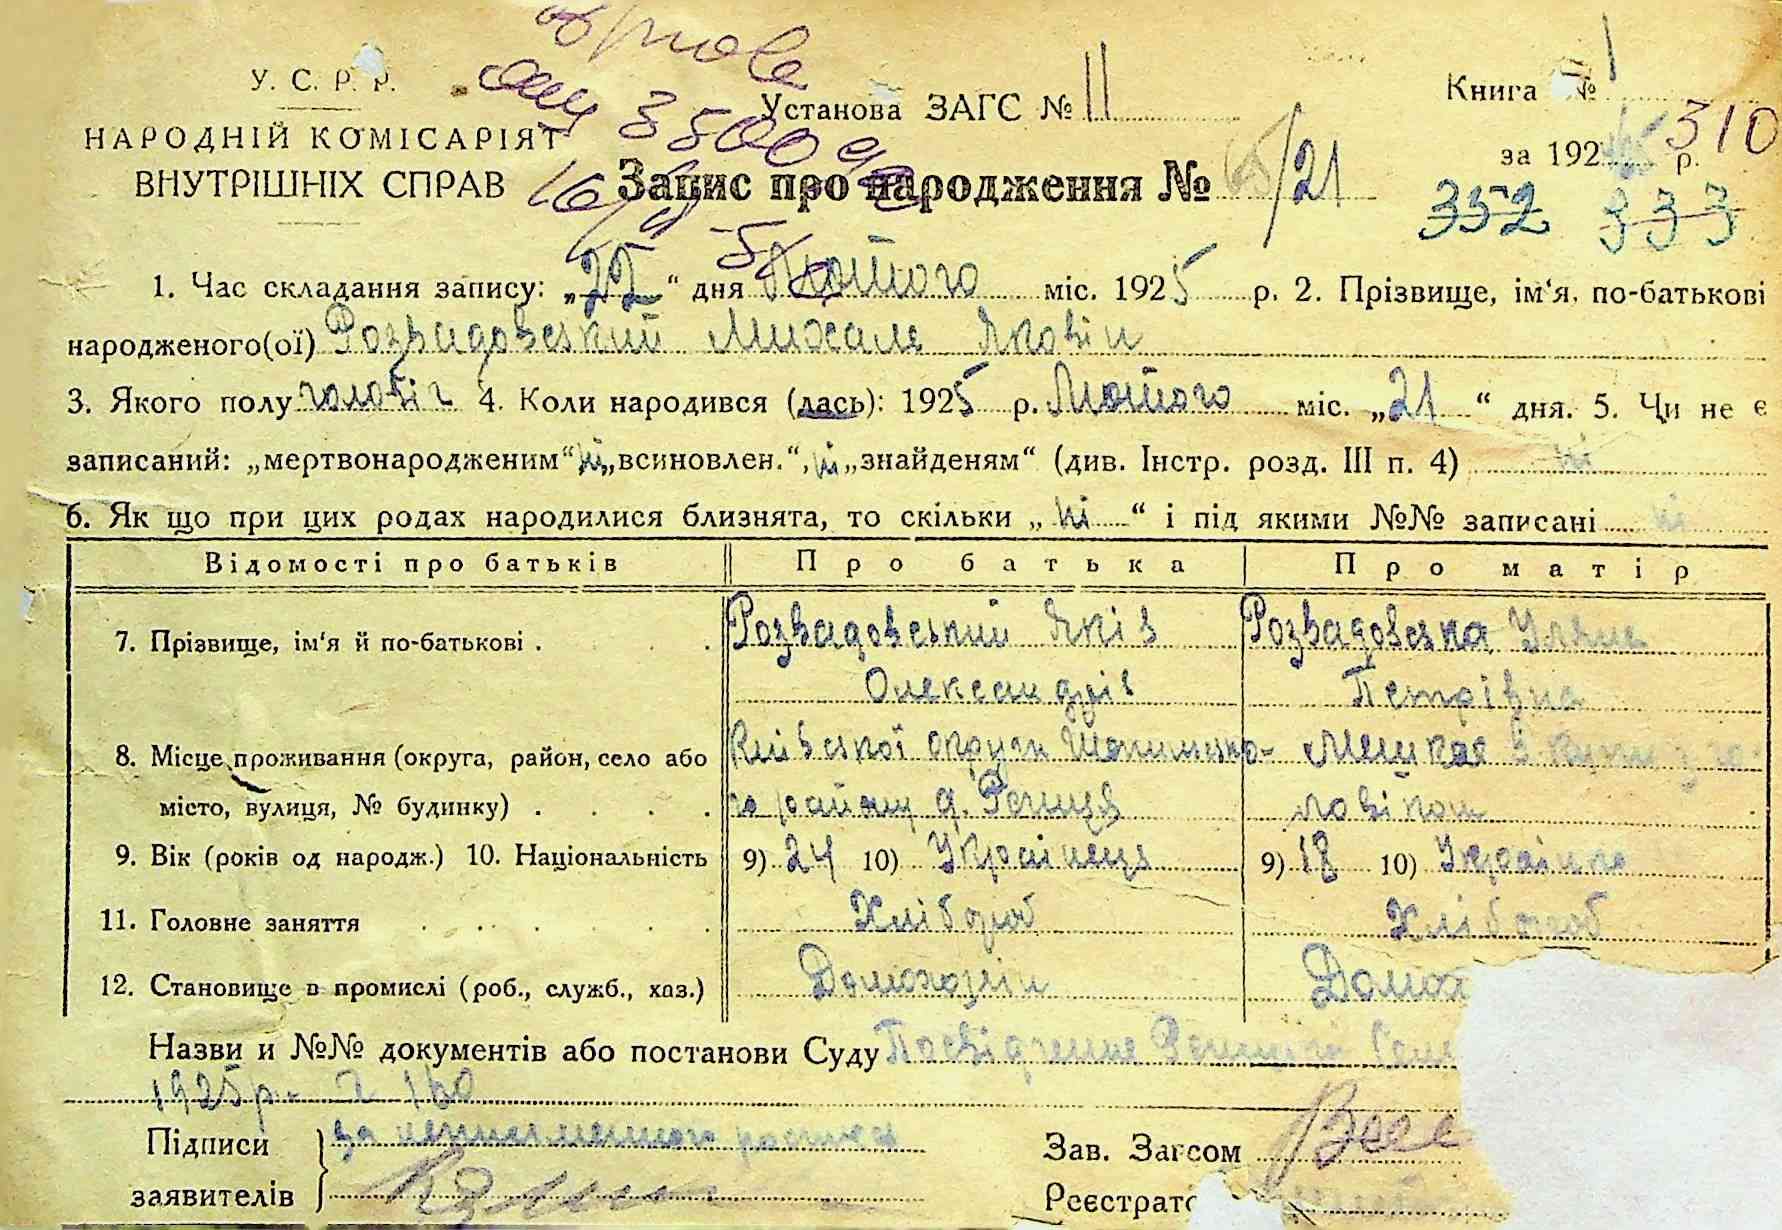 У. С. Р. Р.
НАРОДНІЙ КОМІСАРІЯТ
ВНУТРІШНІХ СПРАВ
Установа ЗАГС № 11
Книга № 1
за 1925 р. 310
352 333
Запис про народження № /21
1. Час складання запису: „22“ дня Лютого міс. 1925 р. 2. Прізвище, ім'я, по-батькові
народженого(ої) Розвадовський Михаля Яковін
3. Якого полу чоловіч 4. Коли народився (лась): 1925 р. Лютого міс. „21“ дня. 5. Чи не є
записаний: „мертвонародженим“ ні „всиновлен.“, ні „знайденям“ (див. Інстр. розд. III п. 4) ні
6. Як що при цих родах народилися близнята, то скільки „ні“ і під якими №№ записані ні
Відомості про батьків Про батька Про матір
7. Прізвище, ім'я й по-батькові . . . Розвадовський Яків Розвадовська Уляна
Олександрів Петрівна
8. Місце проживання (округа, район, село або Київської округи
місто, вулиця, № будинку) . . . . го району
9. Вік (років од народж.) 10. Національність 9) 24 10) Українець 9) 18 10) Українка
11. Головне заняття . . . . . . Хлібороб Хлібороб
12. Становище в промислі (роб., служб., хаз.) Домохозяїн
Назви и №№ документів або постанови Суду Посвідчення
1925 р. 160
Підписи
заявителів
Зав. Загсом
Реєстрато